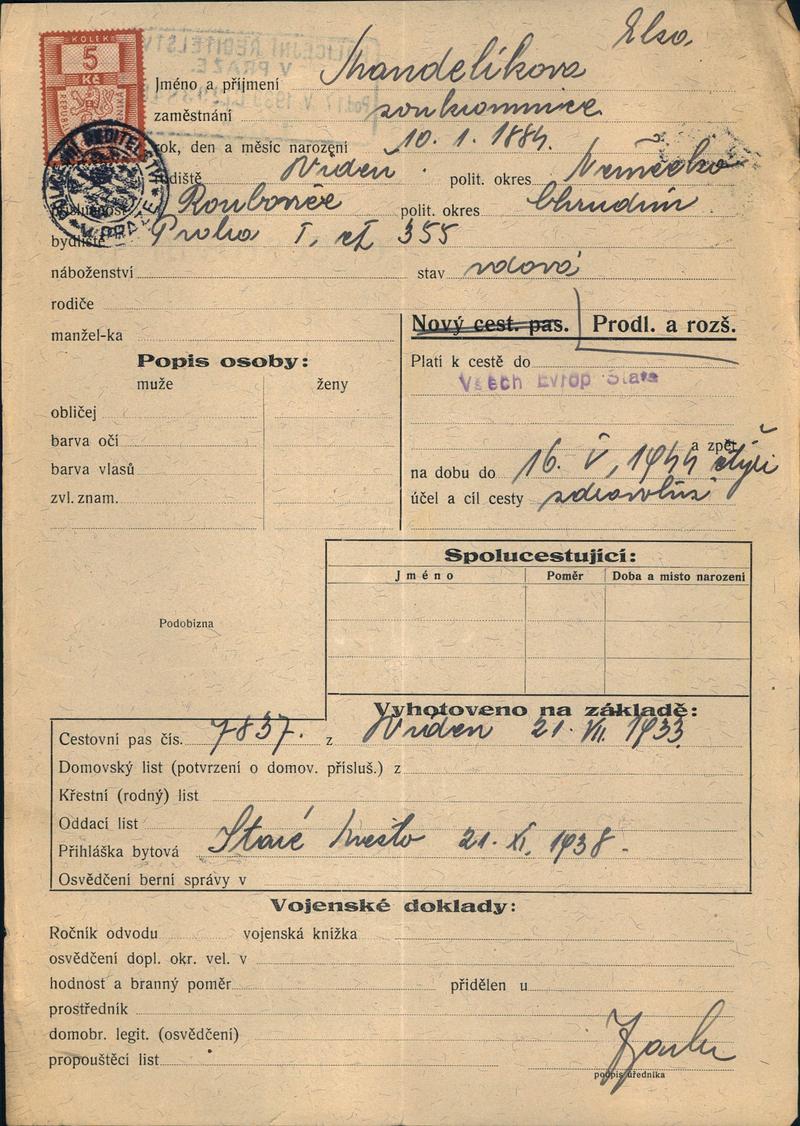 KOLEK
5
Kč
Elsa
Jméno a příjmení Mandelíková
zaměstnání soukromnice
rok, den a měsíc narození 10. 1. 1884.
Vídeň polit. okres Německo
příslušnost polit. okres Chrudim
bydliště Praha I, čl 355
náboženství stav vdova
rodiče
manžel-ka
Nový cest. pas. Prodl. a rozš.
Popis osoby:
muže ženy
obličej
barva očí
barva vlasů
zvl. znam.
Platí k cestě do
Všech Evrop Států
a zpět
na dobu do 16. V, 1944 čtyři
účel a cíl cesty
Spolucestující:
Jméno Poměr Doba a misto narozeni
Podobizna
Vyhotoveno na základě:
Cestovní pas čís. 7837. z Vídeň 21. VII. 1933
Domovský list (potvrzení o domov. přísluš.) z
Křestní (rodný) list
Oddací list
Přihláška bytová Staré Město 21. XI, 1938.
Osvědčení berní správy v
Vojenské doklady:
Ročník odvodu vojenská knížka
osvědčení dopl. okr. vel. v
hodnost a branný poměr přidělen u
prostředník
domobr. legit. (osvědčení)
propouštěcí list
podpis úředníka